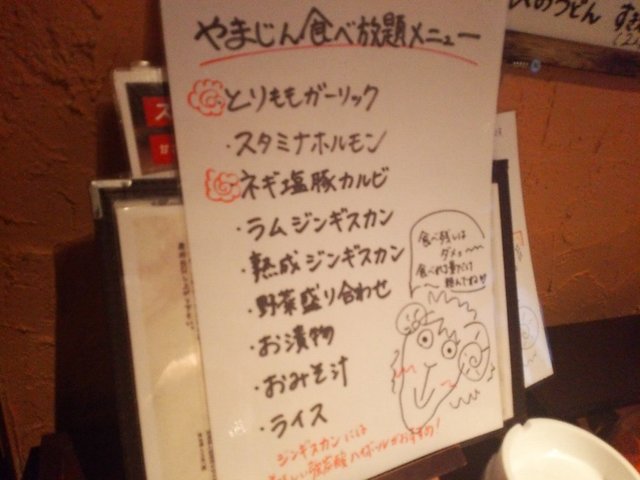 やまじん食べ放題メニュー
とりももガーリック
・スタミナホルモン
ネギ塩豚カルビ
・ラムジンギスカン
・熟成ジンギスカン
・野菜盛り合わせ
・お漬物
・おみそ汁
・ライス
食べ残しは
ダメょ〜
食べれる量だけ
頼んでね♡
ジンギスカンには
強炭酸ハイボールがおすすめ!
うどん